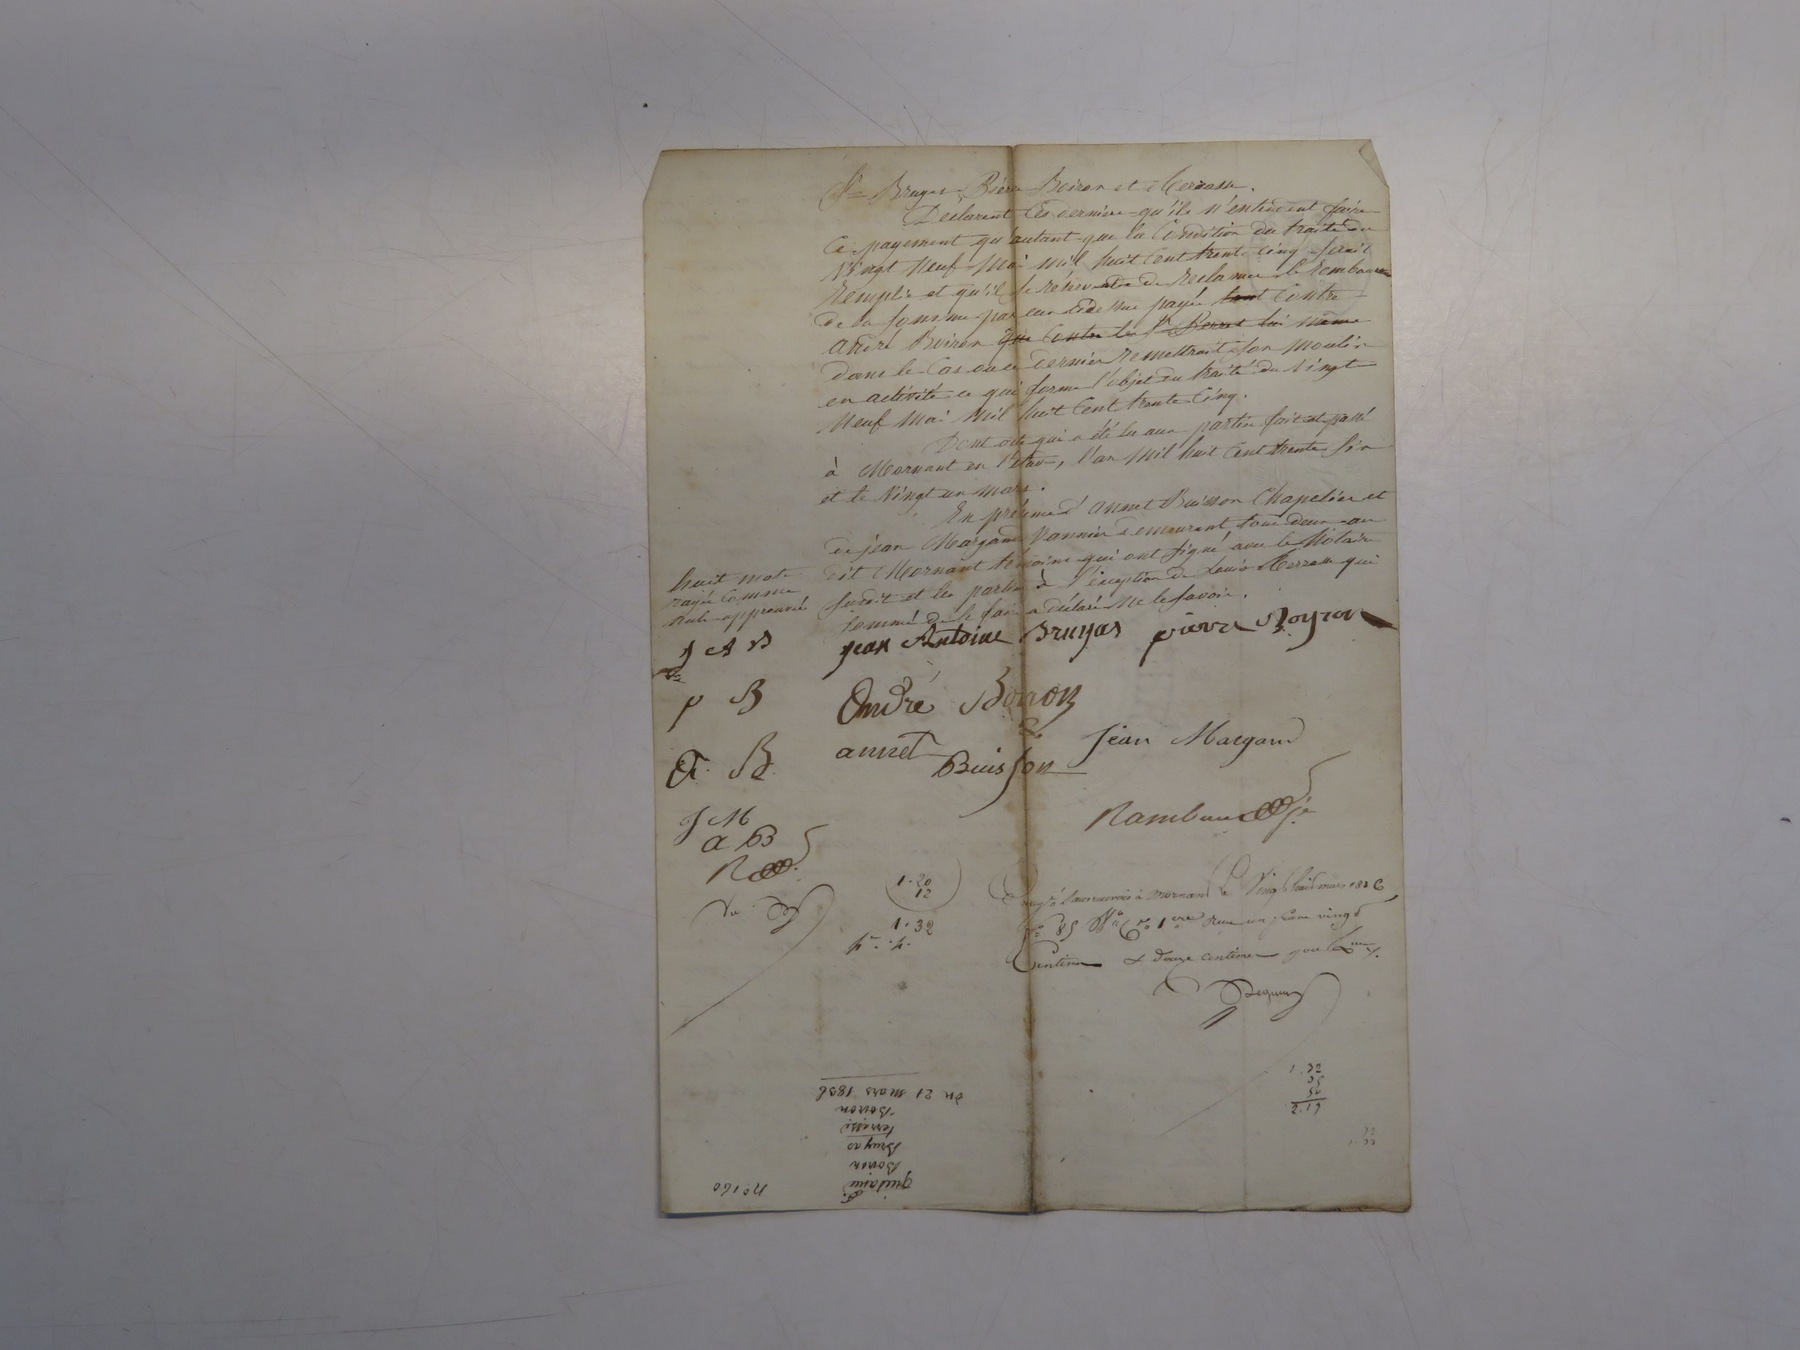 Srs Bruyas Pierre Boiron et Merasse.
Déclarent ces derniers qu'ils n'entendent faire
ce payement qu'autant que la condition du traité du
vingt neuf mai mil huit cent trente cinq serait
remplie et qu'ils se réservent de réclamer le rembours
de la somme par eux payée tant contre
André Boiron que contre le Sr Perret lui même
dans le cas ou ce dernier remettrait son moulin
en activité ce qui forme l'objet du traité du vingt
neuf mai mil huit cent trente cinq.
Dont acte qui a été lu aux parties fait et passé
à Mornant en l'étude, l'an mil huit cent trente six
et le vingt un mars.
En présence d'annet Buisson Chapelier et
de jean Margand Vannier demeurant tous deux au
dit Mornant témoins qui ont signé avec le Notaire
susdit et les parties à l'exception de Louis qui
sommé de le faire a déclaré ne le savoir.
huit mots
rayés comme
nuls approuvés
J A B
jean Antoine Bruyas pierre Boyron
p B
André Boiron
A. B.
annet Buisson
Jean Margand
J M
a B
Rambaud
1.20
12
1.32
Enregistré à mornant le vingt huit mars 1836
fo 85 Vo Co 1ere Reçu un franc vingt
centimes & douze centimes pour
1.32
2.19
du 21 mars 1836
Boiron
Bruyas
Boiron
quittance
No 160